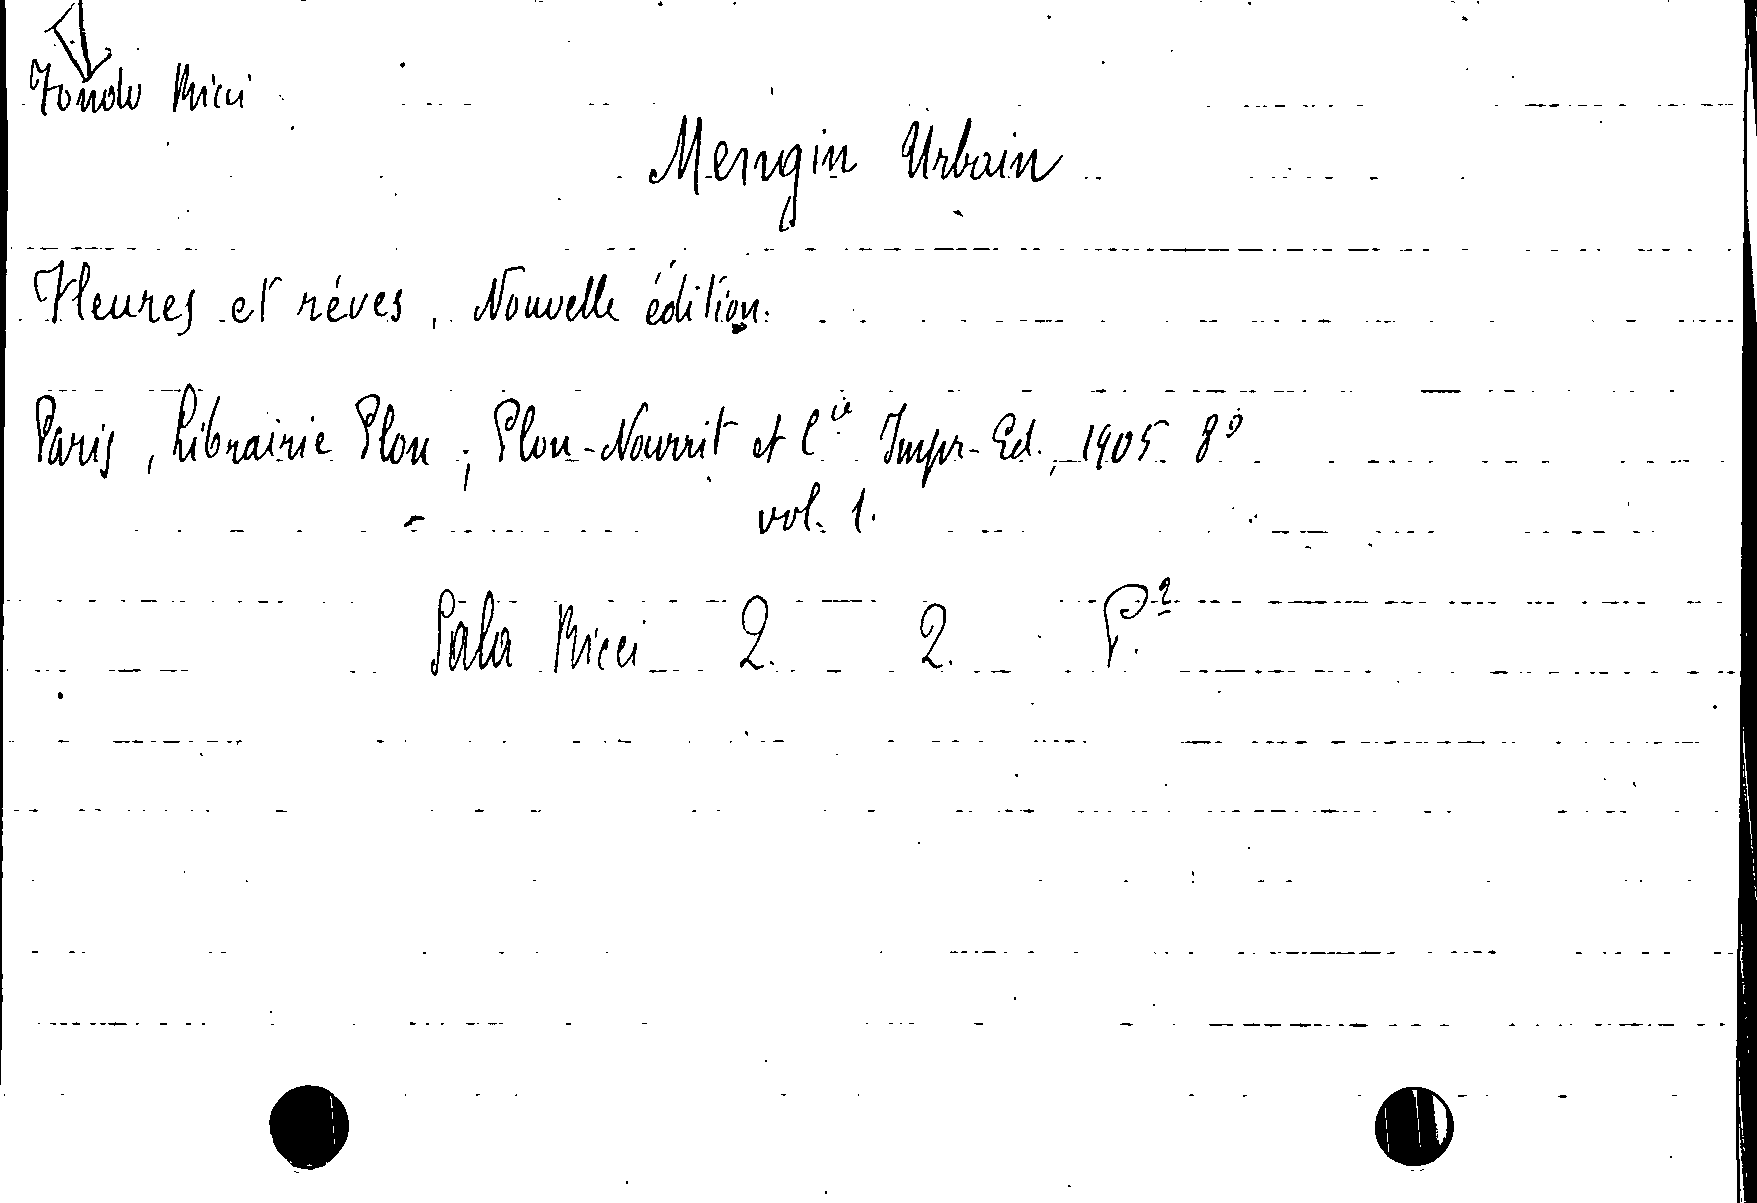 Fondo Ricci
Mengin Urbain
Heures et rêves, Nouvelle édition.
Paris, Librairie Plon; Plon-Nourrit et Cie Impr-Ed., 1905 8º
vol. 1.
Sala Ricci 2. 2. P.2